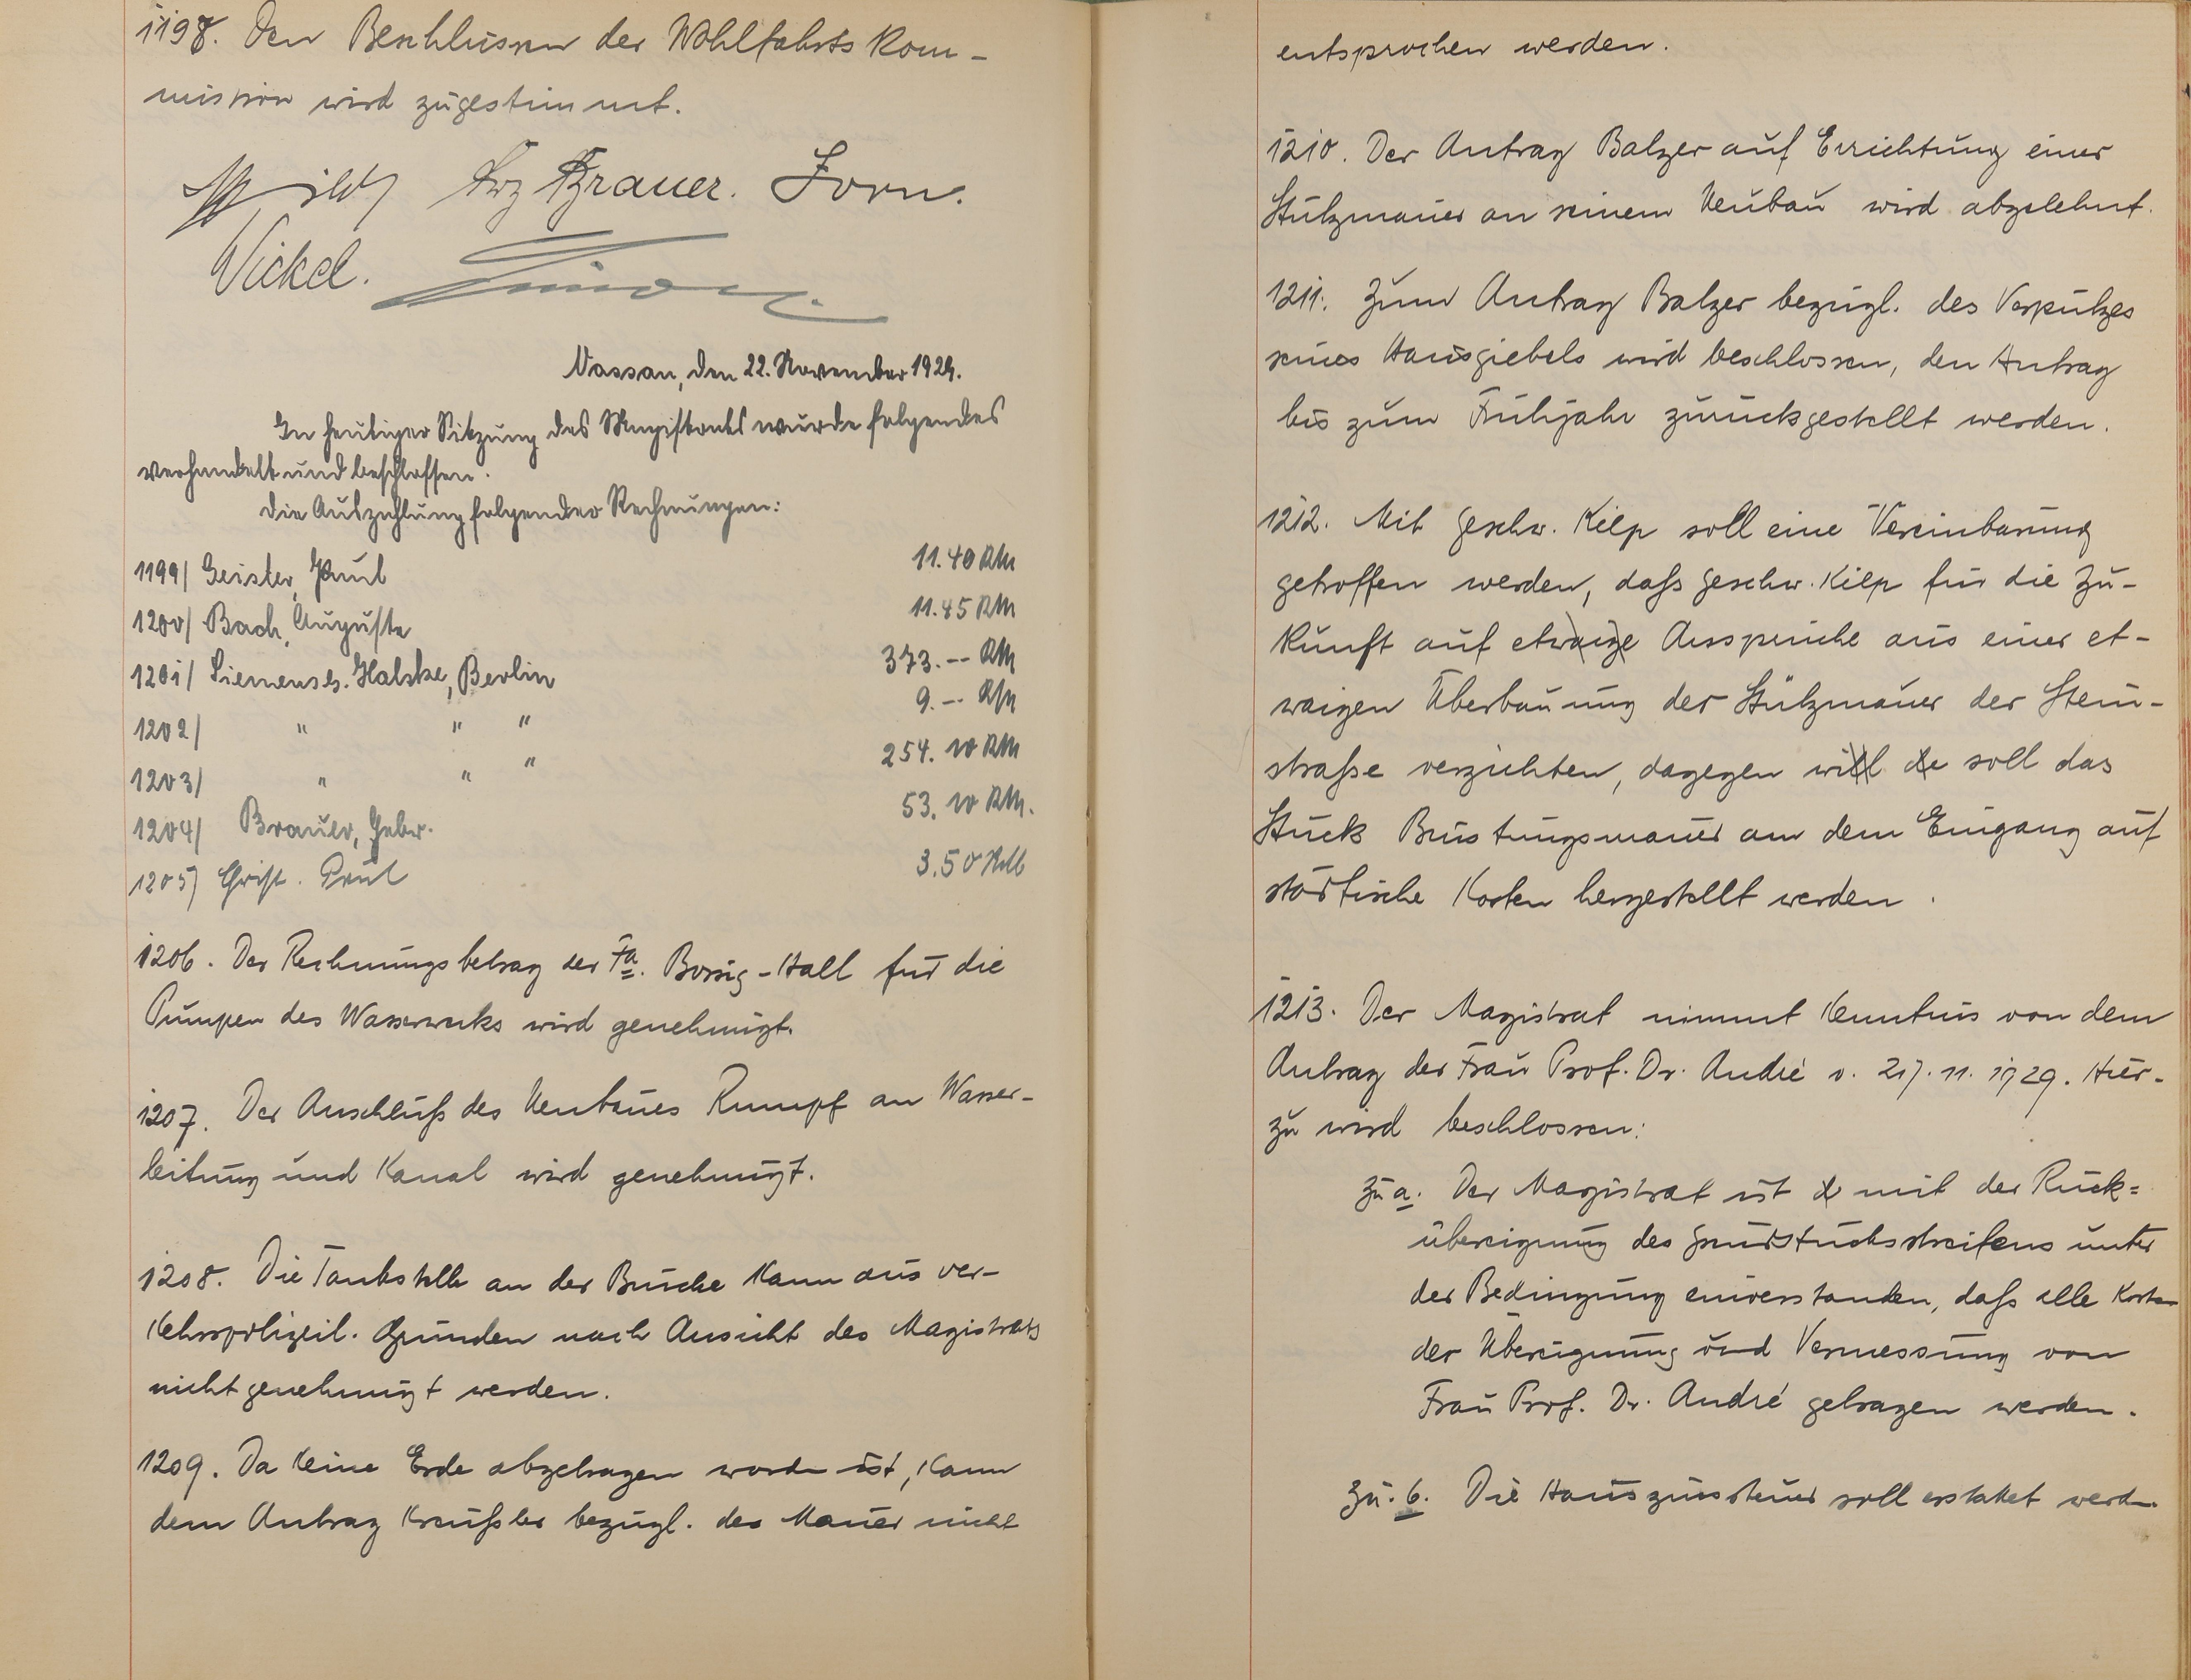 1198. Den Beschlüssen der Wohlfahrts Kom-
mission wird zugestimmt.
Brauer. Zorn.
Nickel.
Nassau, den 22. November 1929.
In heutiger Sitzung des Magistrats wurde folgendes
verhandelt und beschlossen.
Die Auszahlung folgender Rechnungen:
1199/ Geister, Paul 11.40 RM
1200/ Bach, Auguste 11.45 RM
1201/ Siemens u. Halske, Berlin 373.-- RM
1202/ " " " 9.-- RM
1203/ " " " 254.10 RM
1204/ Brauer, Gebr. 53.10 RM.
1205/ Christ. Paul 3.50 RM
1206. Der Rechnungsbetrag der Fa. Borsig-Hall für die
Pumpen des Wasserwerks wird genehmigt.
1207. Der Anschluß des Neubaues Rumpf an Wasser-
leitung und Kanal wird genehmigt.
1208. Die Tankstelle an der Brücke kann aus ver-
kehrspolizeil. Gründen nach Ansicht des Magistrats
nicht genehmigt werden.
1209. Da keine Erde abgetragen worden ist, kann
dem Antrag Kreußler bezügl. der Mauer nicht
entsprochen werden.
1210. Der Antrag Balzer auf Errichtung einer
Stützmauer an seinem Neubau wird abgelehnt.
1211. Zum Antrag Balzer bezügl. des Verputzes
seines Hausgiebels wird beschlossen, den Antrag
bis zum Frühjahr zurückgestellt werden.
1212. Mit Geschw. Kilp soll eine Vereinbarung
getroffen werden, daß Geschw. Kilp für die Zu-
kunft auf etwaige Ansprüche aus einer et-
waigen Überbauung der Stützmauer der Stein-
straße verzichten, dagegen will de soll das
Stück Brüstungsmauer an dem Eingang auf
städtische Kosten hergestellt werden.
1213. Der Magistrat nimmt Kenntnis von dem
Antrag der Frau Prof. Dr. André v. 21. 11. 1929. Hier-
zu wird beschlossen:
Zu a. Der Magistrat ist d mit der Rück=
übereignung des Grundstücksstreifens unter
der Bedingung einverstanden, daß alle Kosten
der Übereignung und Vermessung von
Frau Prof. Dr. André getragen werden.
Zu. b. Die Hauszinssteuer soll erstattet werden